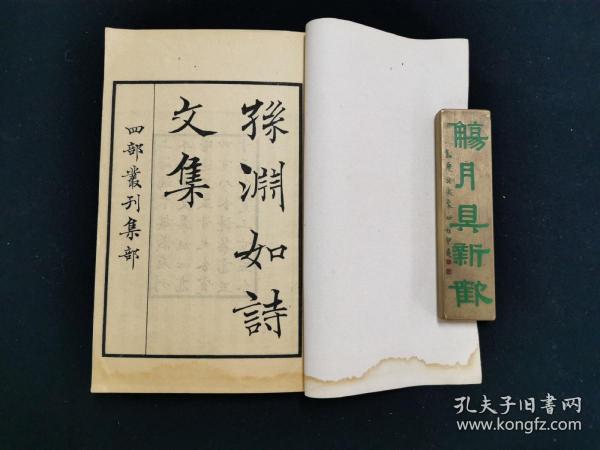 孫淵如詩
文集
四部叢刊集部
觴月具新歡
孔夫子旧书网
www.kongfz.com